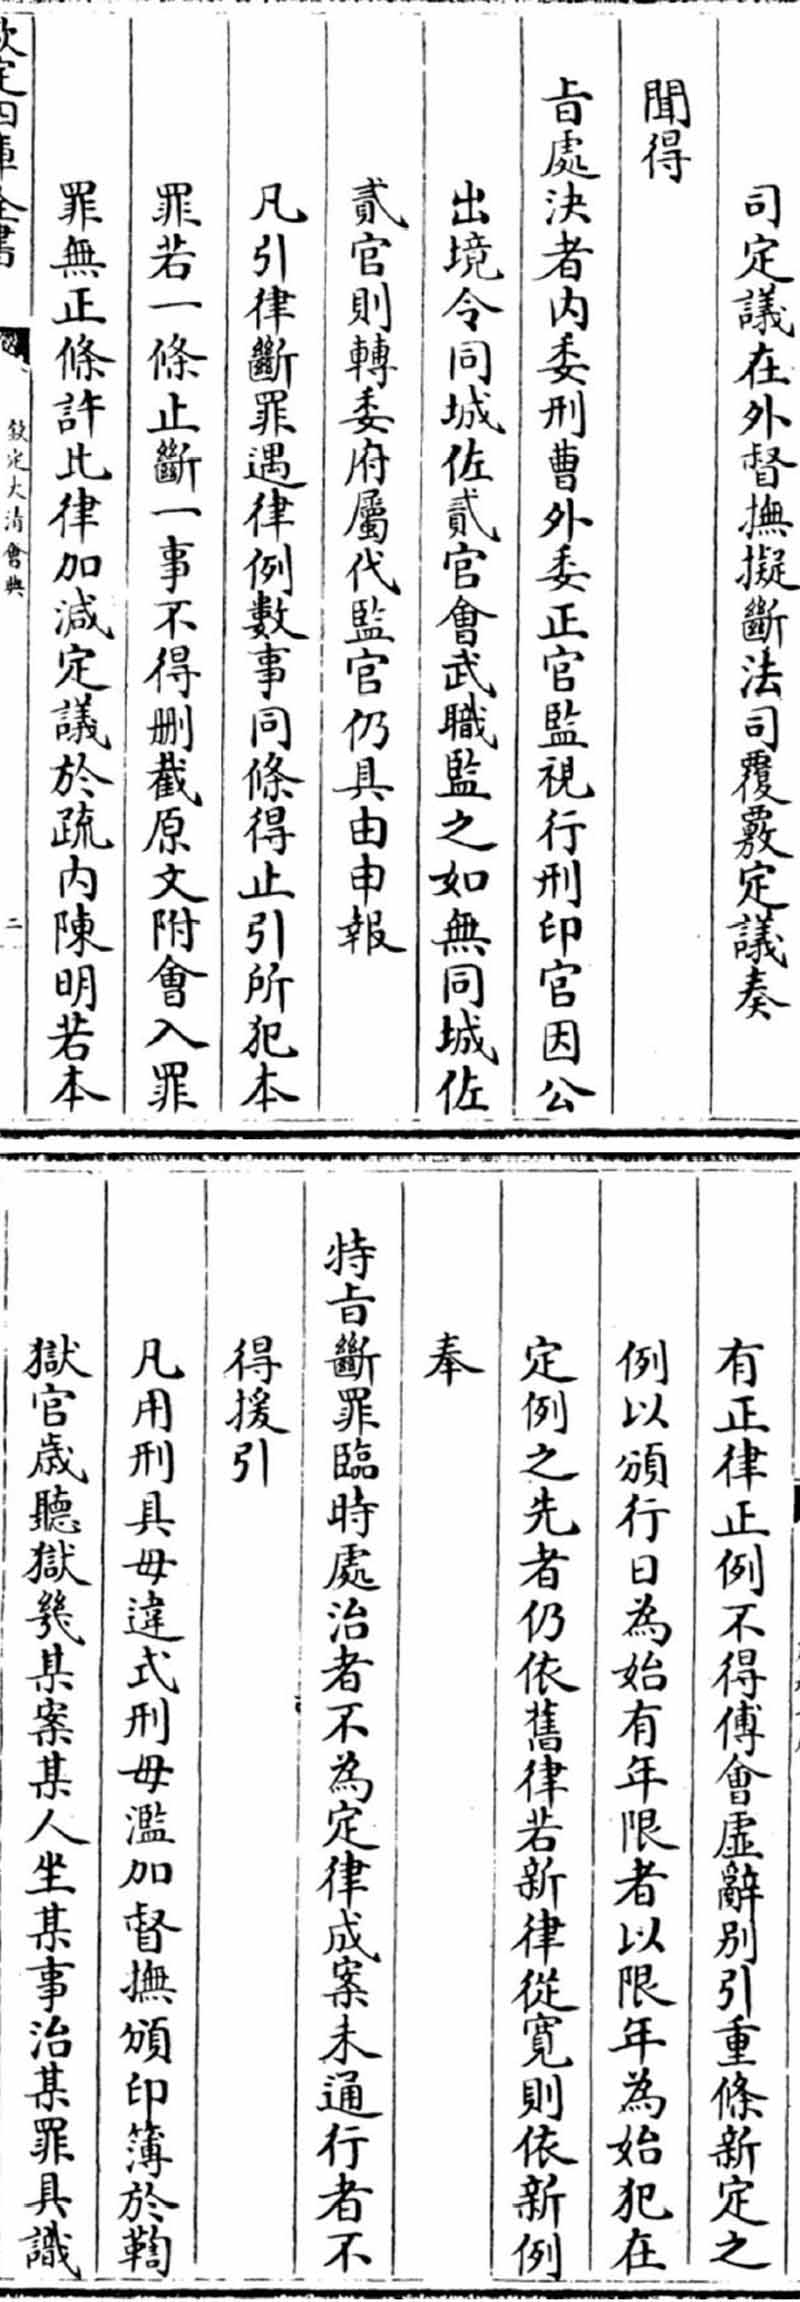 司定議在外督撫擬斷法司覆覈定議奏
聞得
旨處決者内委刑曹外委正官監視行刑印官因公
出境令同城佐貳官會武職監之如無同城佐
貳官則轉委府屬代監官仍具由申報
凡引律斷罪遇律例數事同條得止引所犯本
罪若一條止斷一事不得刪截原文附會入罪
罪無正條許比律加減定議於疏内陳明若本
欽定四庫全書
欽定大清會典
二
有正律正例不得傅會虛辭别引重條新定之
例以頒行日為始有年限者以限年為始犯在
定例之先者仍依舊律若新律從寛則依新例
奉
特旨斷罪臨時處治者不為定律成案未通行者不
得援引
凡用刑具毋違式刑毋濫加督撫頒印簿於鞫
獄官歳聽獄幾某案某人坐某事治某罪具識